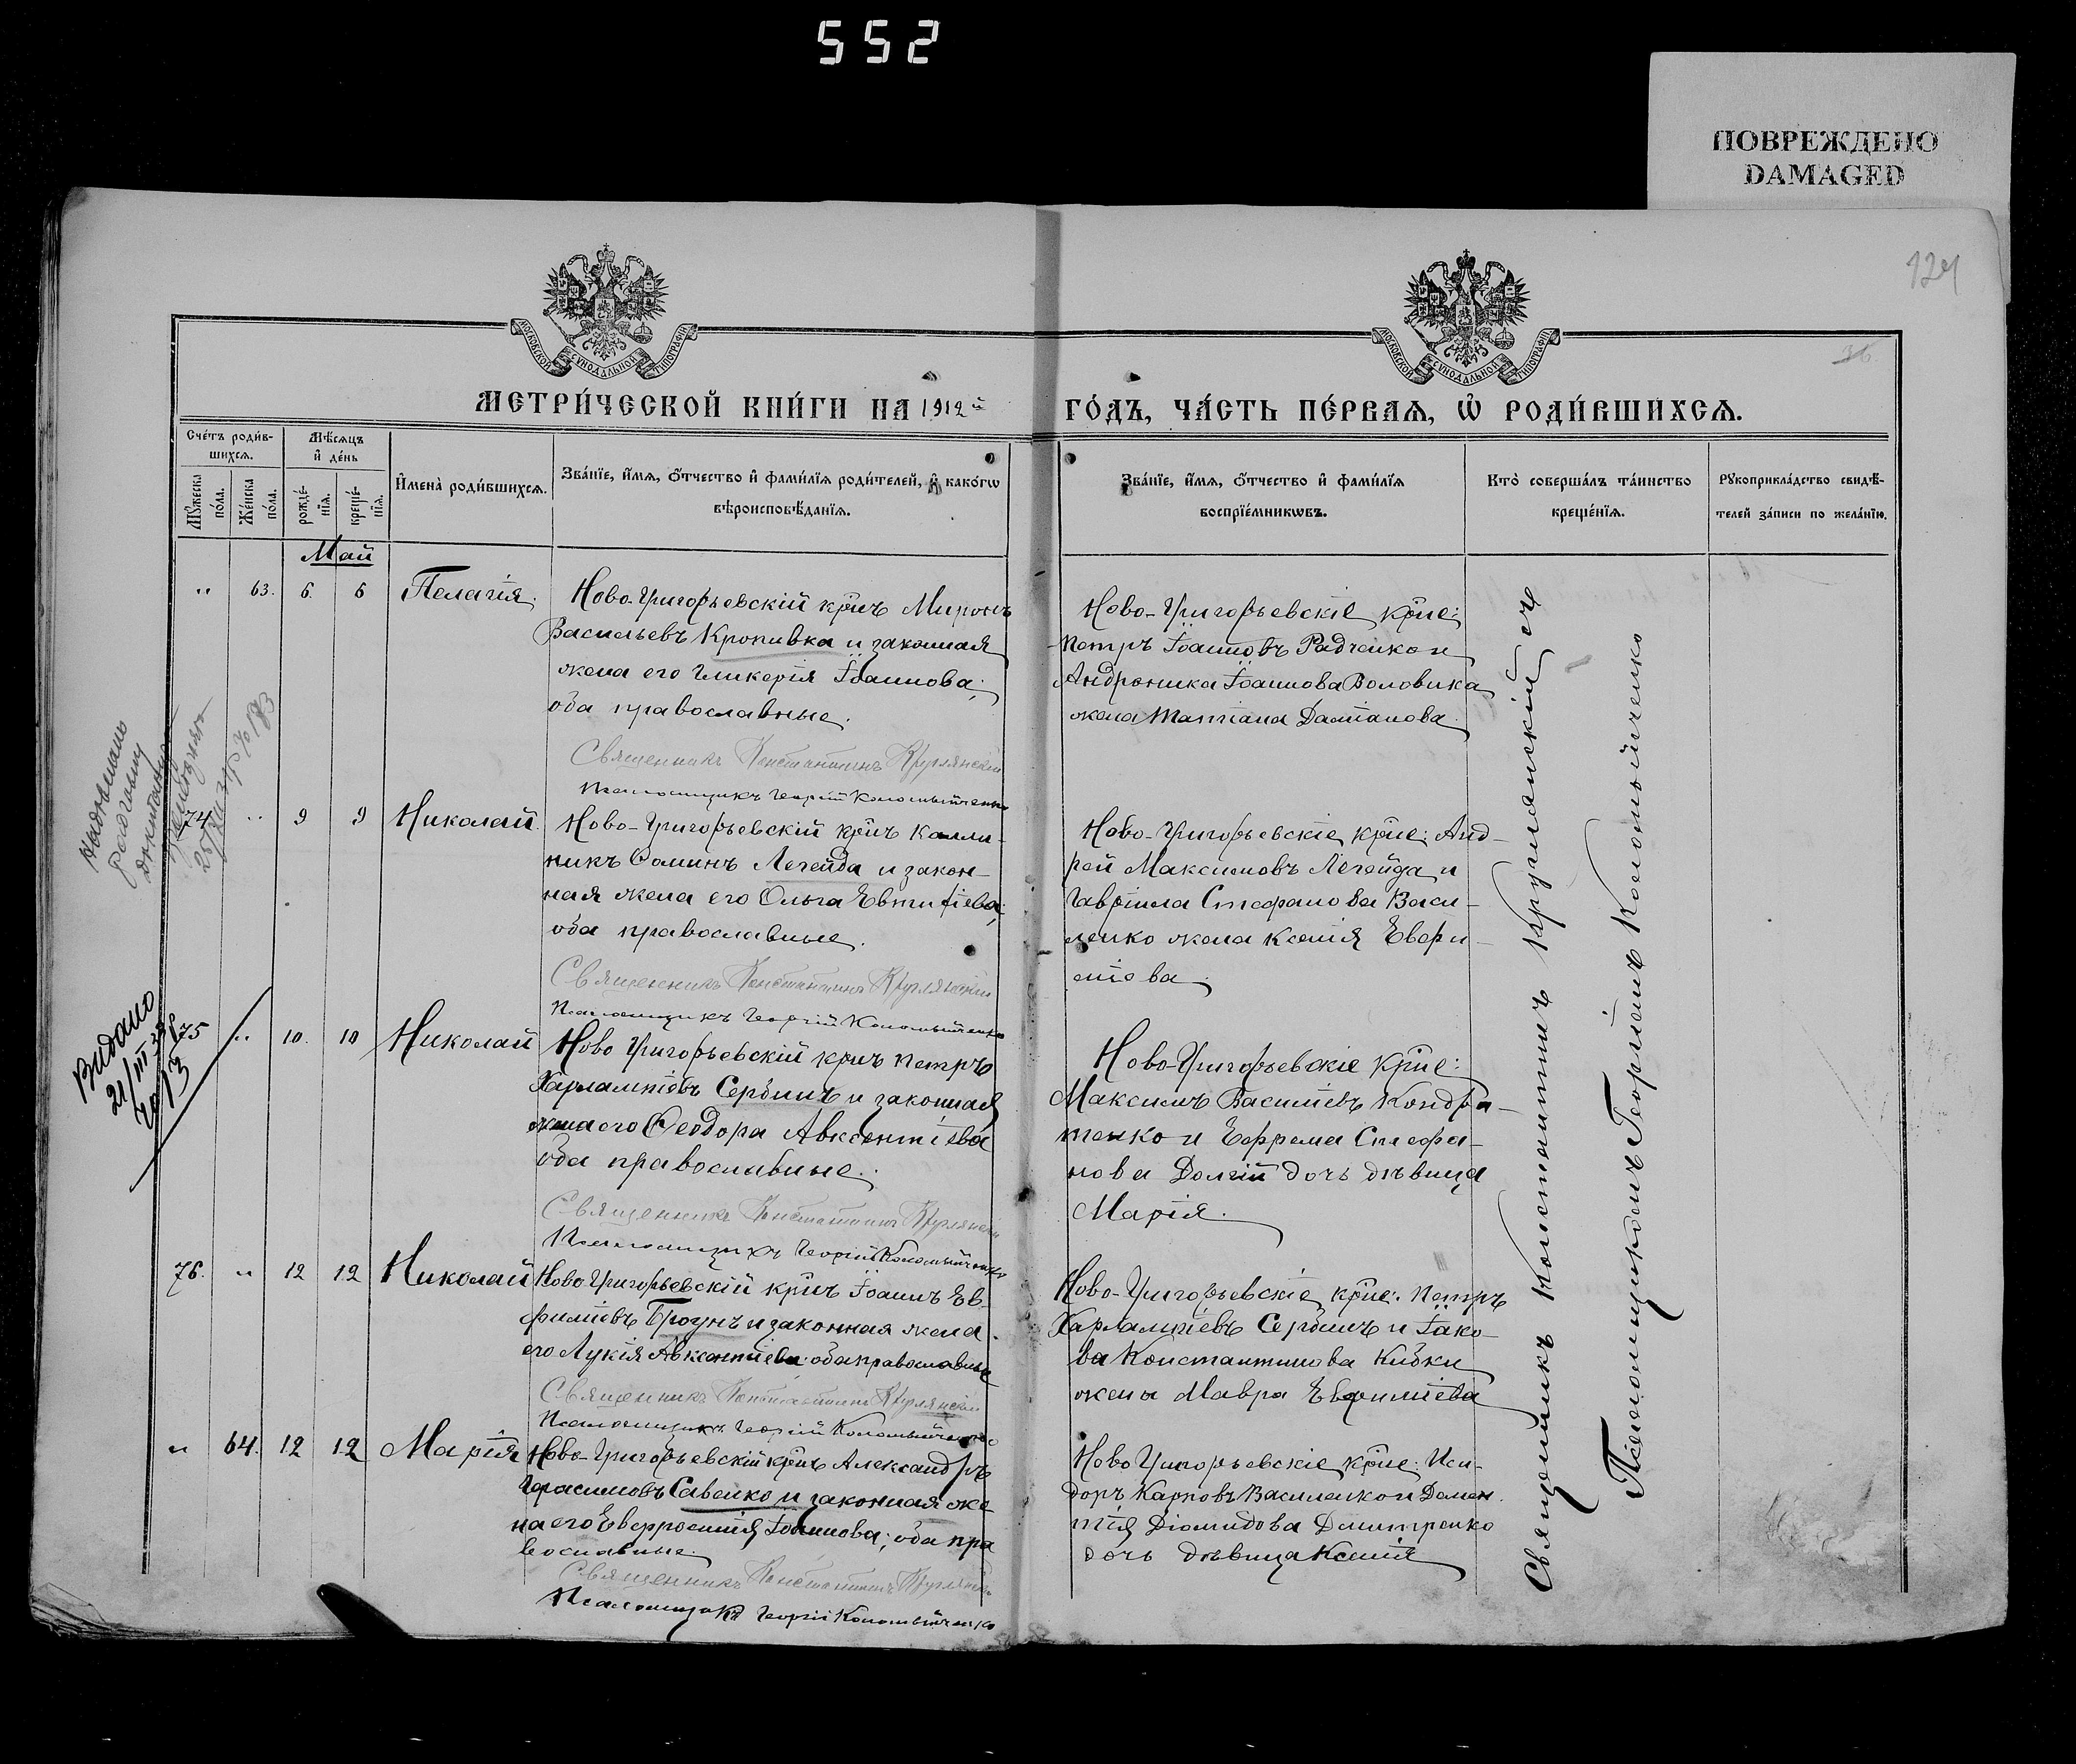 552
ПОВРЕЖДЕНО
DAMAGED
124
36
МОСКОВСКОЙ СѴНОДАЛЬНОЙ ТИПОГРАФІИ
МОСКОВСКОЙ СѴНОДАЛЬНОЙ ТИПОГРАФІИ
МЕТРИ́ЧЕСКОЙ КНИ́ГИ НА 1912й ГО́ДЪ, ЧА́СТЬ ПЕ́РВАѦ, Ѽ РОДИ́ВШИХСѦ.
Сче́тъ роди́в-
шихсѧ.
Мꙋ́жеска по́ла.
Же́нска по́ла.
Мѣ́сѧцъ
и҆ де́нь
рожде́-
нїѧ.
креще́-
нїѧ.
И҆мена̀ роди́вшихсѧ.
Зва́нїе, и҆́мѧ, ѻ҆́тчество и҆ фами́лїѧ роди́телей, и҆ како́гѡ
вѣроисповѣ́данїѧ.
Зва́нїе, и҆́мѧ, ѻ҆́тчество и҆ фами́лїѧ
воспрїе́мникѡвъ.
Кто̀ соверша́лъ та́инство
креще́нїѧ.
Рꙋкоприкла́дство свидѣ́-
телей за́писи по жела́нїю.
Май
" 63. 6. 6 Пелагія.
Ново-Григорьевскій кр̃нъ Миронъ
Васильевъ Кропивка и законная
жена его Гликерія Іоаннова;
оба православные.
Священникъ Константинъ Круглянскій
Псаломщикъ Георгій Коломыйченко
Ново-Григорьевскіе кр̃не:
Петръ Іоанновъ Радченко и
Андроника Іоаннова Воловика
жена Татіана Даміанова.
74 " 9 9 Николай.
Ново-Григорьевскій кр̃нъ Калли-
никъ Ѳоминъ Легейда и закон-
ная жена его Ольга Евтифіева;
оба православные.
Священникъ Константинъ Круглянскій
Псаломщикъ Георгій Коломыйченко
Ново-Григорьевскіе кр̃не: Анд-
рей Максимовъ Легейда и
Гавріила Стефанова Васи-
ленко жена Ксенія Евфи-
міева.
Видано
21/III
75 " 10. 10 Николай
Ново Григорьевскій кр̃нъ Петръ
Харлампіевъ Сербинъ и законная
жена его Ѳеодора Авксентіева
оба православные.
Священникъ Константинъ Круглянскій
Псаломщикъ Георгій Коломыйченко
Ново-Григорьевскіе кр̃не:
Максимъ Василіевъ Кондра-
тенко и Ефрема Стефа-
нова Долгій дочь дѣвица
Марія.
76. " 12 12 Николай
Ново Григорьевскій кр̃нъ Іоаннъ Ев-
фиміевъ Бровунъ и законная жена
его Лукія Авксентіева; оба православные
Священникъ Константинъ Круглянскій
Псаломщикъ Георгій Коломыйченко
Ново-Григорьевскіе кр̃не: Петръ
Харлампіевъ Сербинъ и Іако-
ва Константинова Кибки
жена Мавра Евфиміева
" 64. 12 12 Марія
Ново-Григорьевскій кр̃нъ Александръ
Герасимовъ Савенко и законная же-
на его Евфросинія Іоаннова; оба пра
вославные.
Священникъ Константинъ Круглянскій
Псаломщикъ Георгій Коломыйченко
Ново Григорьевскіе кр̃не: Иси-
доръ Карповъ Василенко и Домен.
тія Діомидова Дмитренко
дочь дѣвица Ксенія
Священникъ Константинъ Круглянскій съ
Псаломщикомъ Георгіемъ Коломыйченко